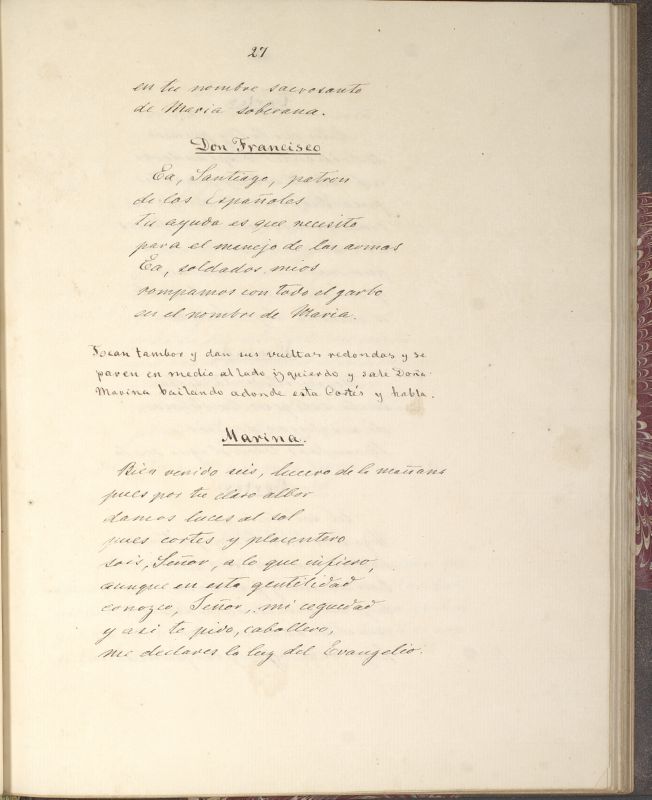 27
en tu nombre sacrosanto
de Maria soberana.
Don Francisco
Ea, Santiago, patron
de los españoles
tu ayuda es que necesito
para el manejo de las armas
Ea, soldados mios
rompamos con todo el garbo
en el nombre de Maria.
Tocan tambor y dan sus vueltas redondas y se
paren en medio al lado izquierdo y sale Doña
Marina bailando adonde esta Cortés y habla.
Marina.
Bien venido seis, lucero de la mañana
pues por tu claro albor
damos luces al sol
pues cortes y placentero
sois, Señor, a lo que infiero,
aunque en esta gentilidad
conozco, Señor, mi ceguedad
y asi te pido, caballero,
me declares la luz del Evangelio.